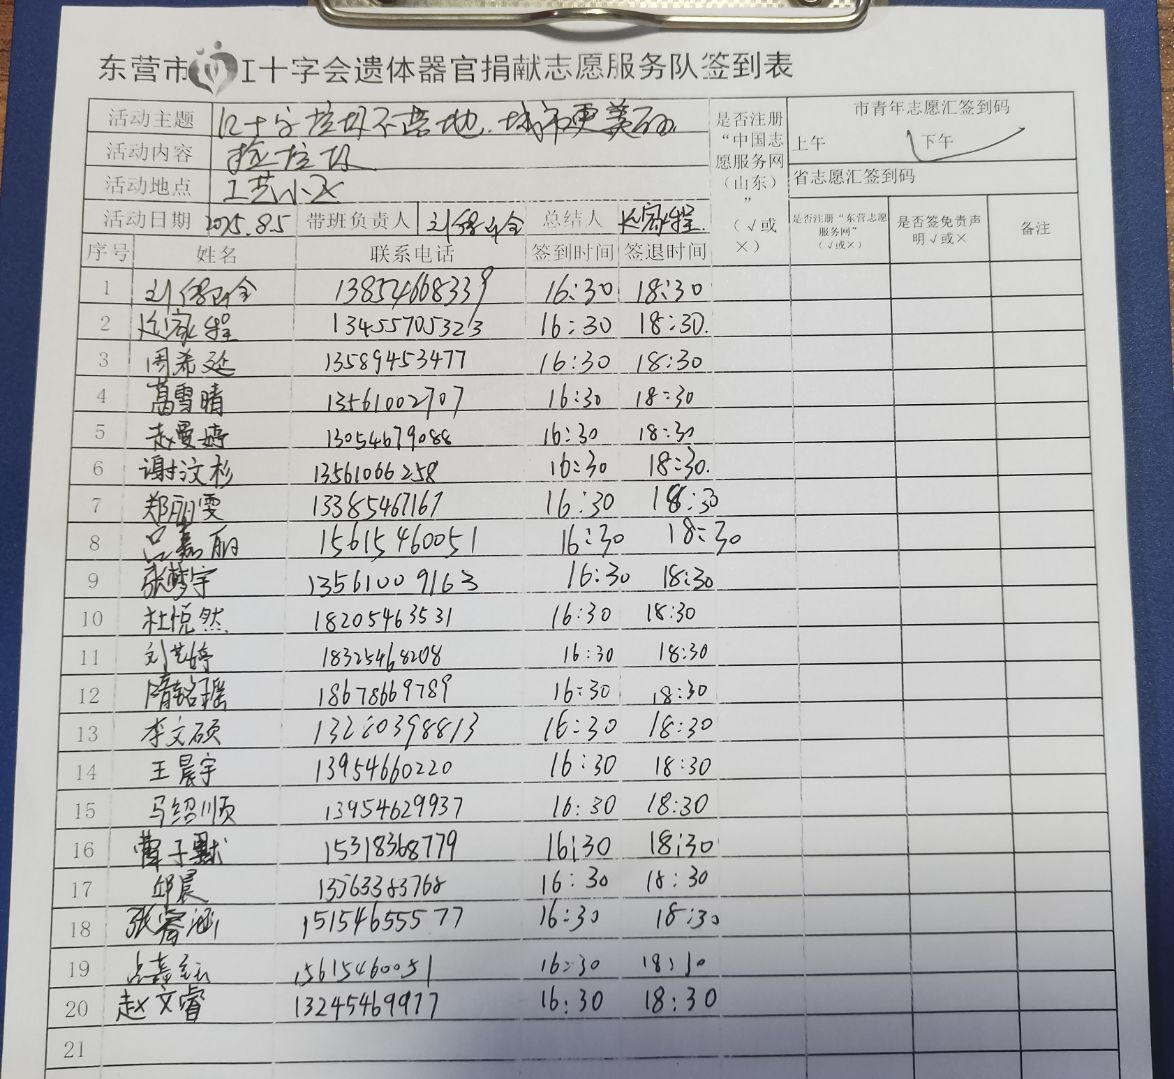 东营市红十字会遗体器官捐献志愿服务队签到表
活动主题 红十字垃圾不落地.城市更美丽
活动内容 捡垃圾
活动地点 工艺小区
是否注册“中国志愿服务网（山东）”（√或×）
市青年志愿汇签到码
上午 下午
省志愿汇签到码
活动日期 2025.8.5 带班负责人 总结人
是否注册“东营志愿服务网”（√或×） 是否签免责声明√或× 备注
序号 姓名 联系电话 签到时间 签退时间
1 13854668339 16:30 18:30
2 13455705323 16:30 18:30.
3 周希延 13589453477 16:30 18:30
4 葛雪晴 13561002707 16:30 18:30
5 赵曼婷 13054679088 16:30 18:30
6 谢汶杉 13561066258 16:30 18:30.
7 郑丽雯 13385467167 16:30 18:30
8 吕嘉丽 15615460051 16:30 18:30
9 张梦宇 13561009163 16:30 18:30
10 杜悦然 18205463531 16:30 18:30
11 刘艺婷 18325468208 16:30 18:30
12 隋铭瑶 18678669789 16:30 18:30
13 李文硕 13260398813 16:30 18:30
14 王晨宇 13954660220 16:30 18:30
15 马绍顺 13954629937 16:30 18:30
16 曹子默 15318368779 16:30 18:30
17 邱晨 13563383768 16:30 18:30
18 张睿涵 15154655577 16:30 18:30
19 15615460051 16:30 18:30
20 赵文睿 13245469977 16:30 18:30
21